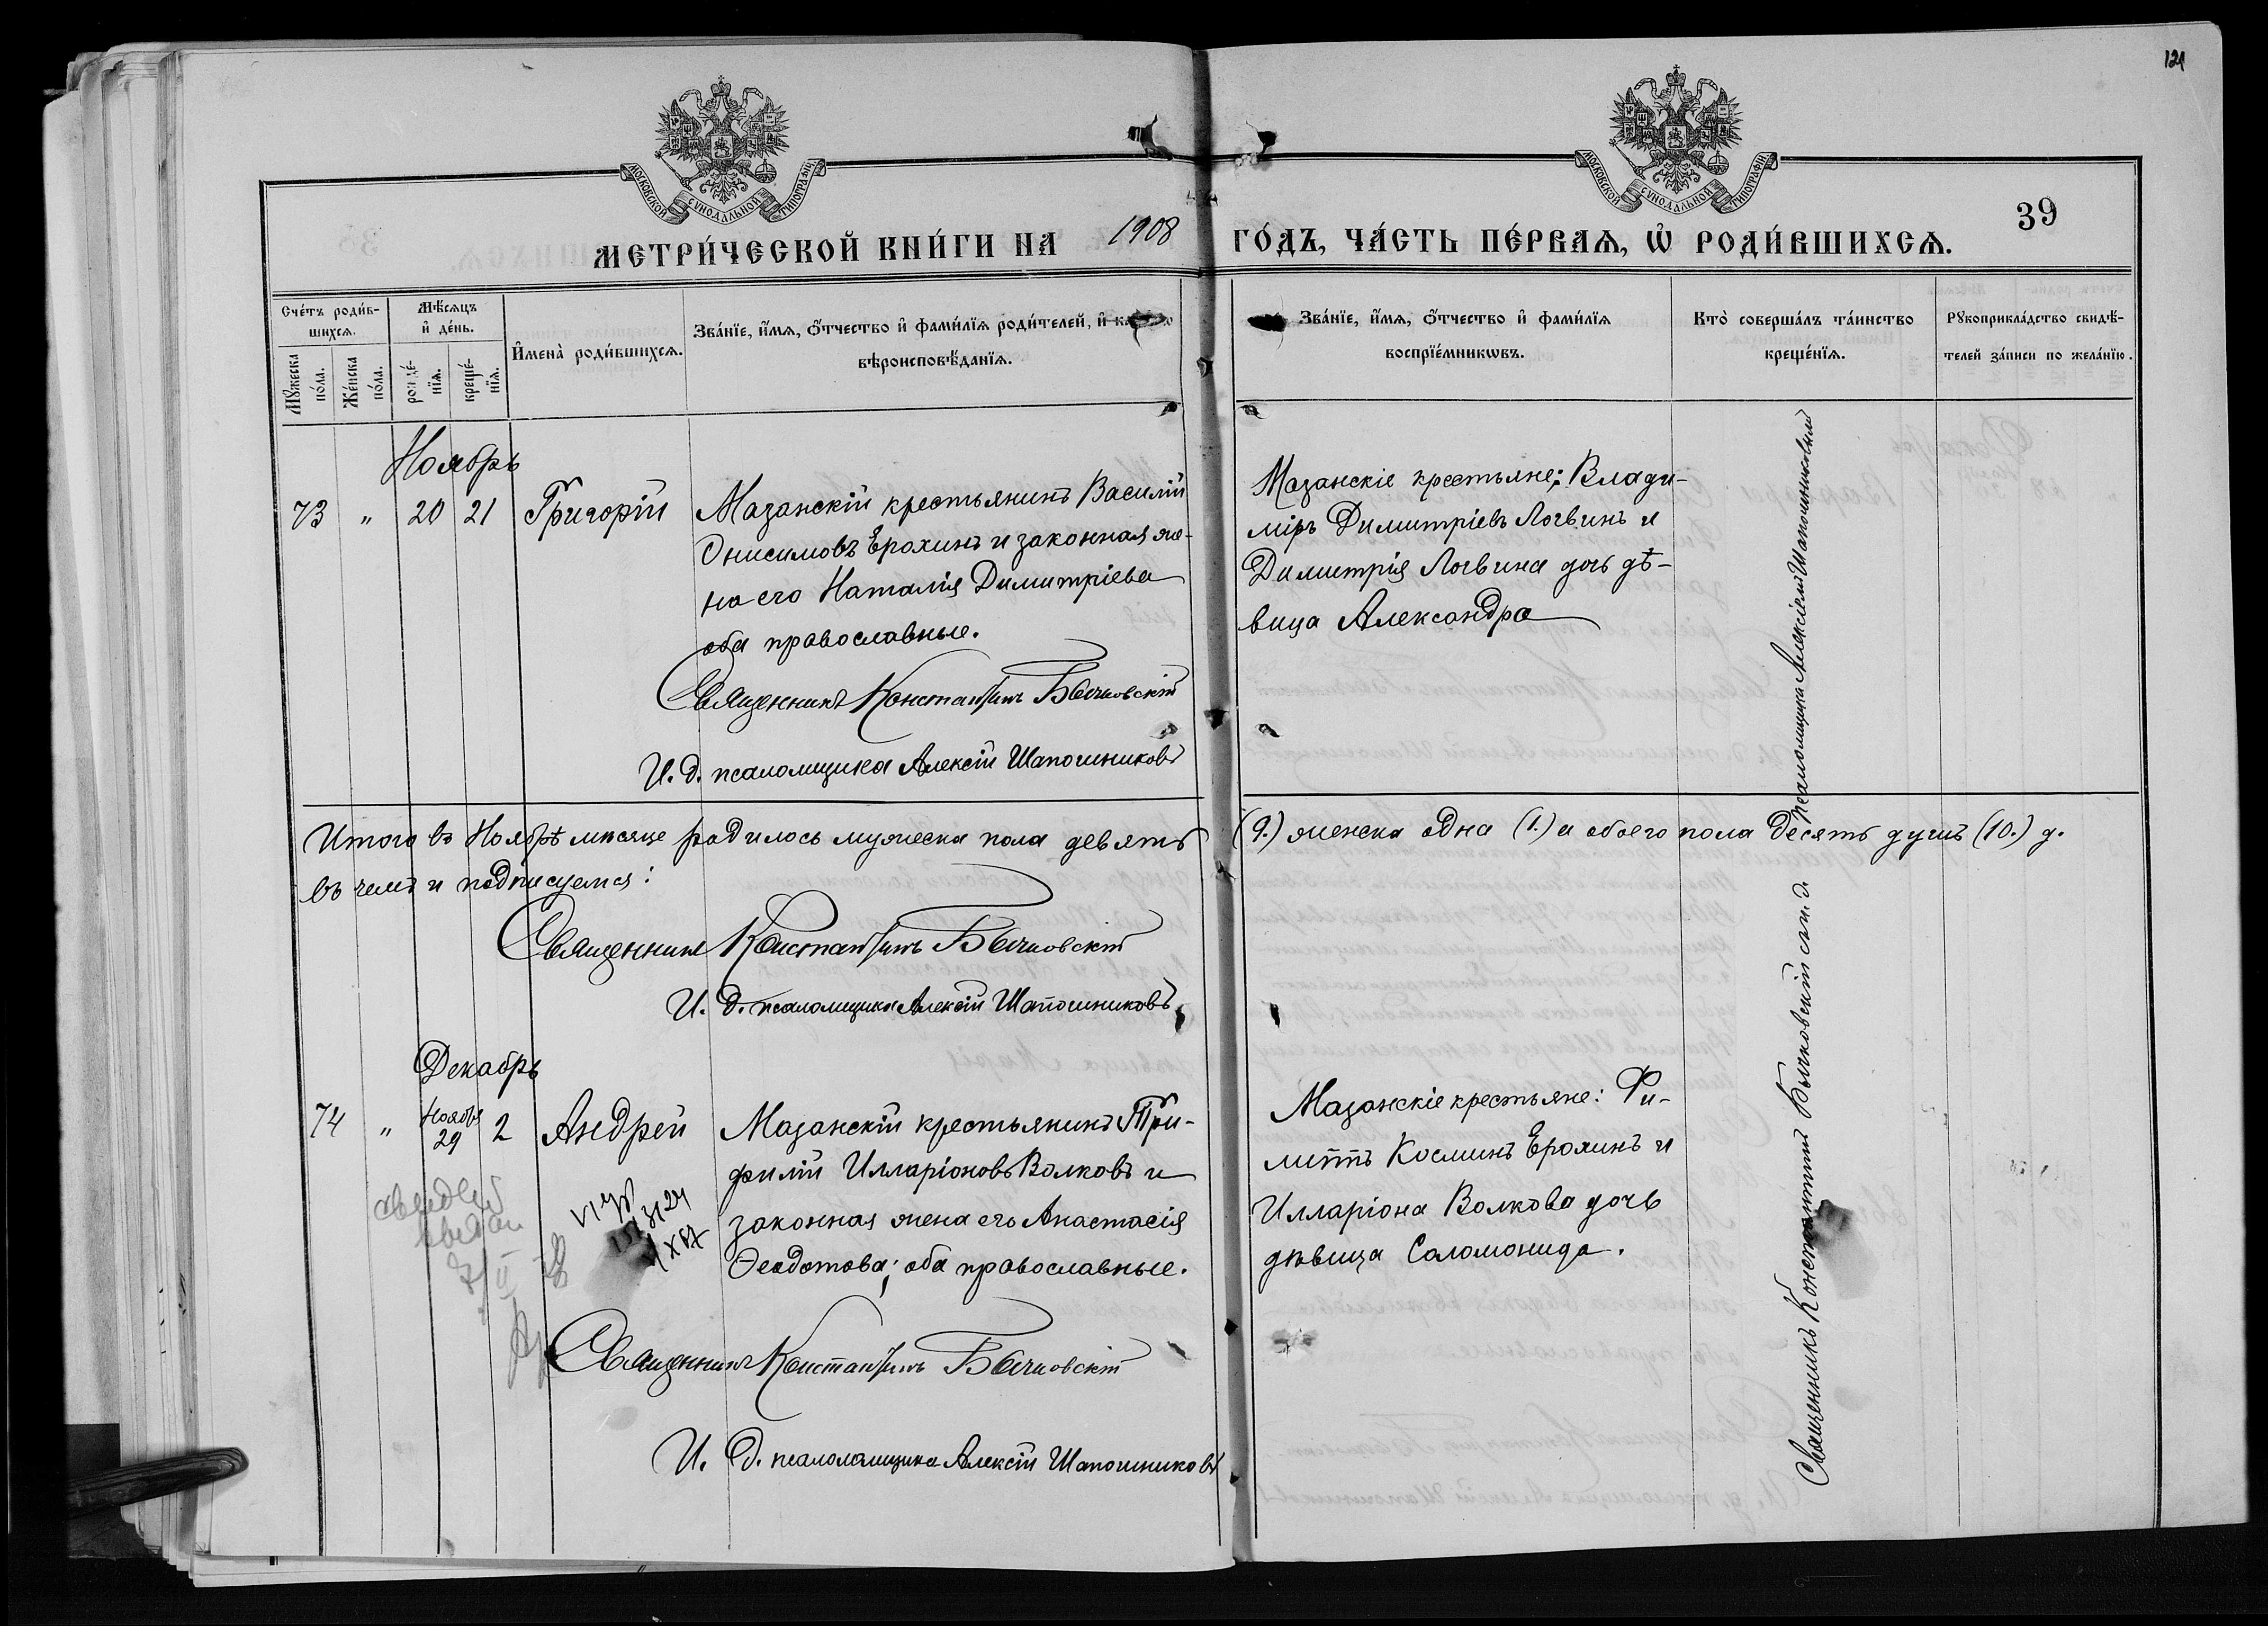 121
МОСКОВСКОЙ СѴНОДАЛЬНОЙ ТИПОГРАФІИ.
МОСКОВСКОЙ СѴНОДАЛЬНОЙ ТИПОГРАФІИ.
39
МЕТРИ́ЧЕСКОЙ КНИ́ГИ НА 1908 ГО́ДЪ, ЧА́СТЬ ПЕ́РВАѦ, Ѡ҆ РОДИ́ВШИХСѦ.
Сче́тъ роди́в-
шихсѧ.
Мꙋ́жеска
по́ла.
Же́нска
по́ла.
Мѣ́сѧцъ
и҆ де́нь.
рожде́-
нїѧ.
креще́-
нїѧ.
И҆мена̀ роди́вшихсѧ.
Зва́нїе, и҆́мѧ, ѻ҆́тчество и҆ фами́лїѧ роди́телей, и҆
вѣроисповѣ́данїѧ.
Зва́нїе, и҆́мѧ, ѻ҆́тчество и҆ фами́лїѧ
воспрїе́мникѡвъ.
Кто̀ соверша́лъ та́инство
креще́нїѧ.
Рꙋкоприкла́дство свидѣ́-
телей за́писи по жела́нїю.
Ноябрь
73 " 20 21 Григорій
Мазанскій крестьянинъ Василій
Онисимовъ Ерохинъ и законная же-
на его Наталія Димитріева
оба православные.
Священникъ Константинъ Бычковскій
И. д. псаломщика Алексій Шапошниковъ
Мазанскіе крестьяне: Влади-
міръ Димитріевъ Логвинъ и
Димитрія Логвина дочь дѣ-
вица Александра
Итого въ Ноябрѣ мѣсяце родилось мужеска пола девять (9.) женска одна (1.) а обоего пола десять душъ (10.) д.
въ чемъ и подписуемся:
Священникъ Константинъ Бычковскій
И. д. псаломщика Алексій Шапошниковъ
Декабрь
74 " Ноября 29 2 Андрей
Мазанскій крестьянинъ Три-
филій Илларіоновъ Волковъ и
законная жена его Анастасія
Ѳеодотова; оба православные.
Священникъ Константинъ Бычковскій
И. д. псаломщика Алексій Шапошниковъ
Мазанскіе крестьяне: Фи-
липпъ Косминъ Ерохинъ и
Илларіона Волкова дочь
дѣвица Саломонида.
Священникъ Константинъ Бычковскій съ и. д. псаломщика Алексіемъ Шапошниковымъ